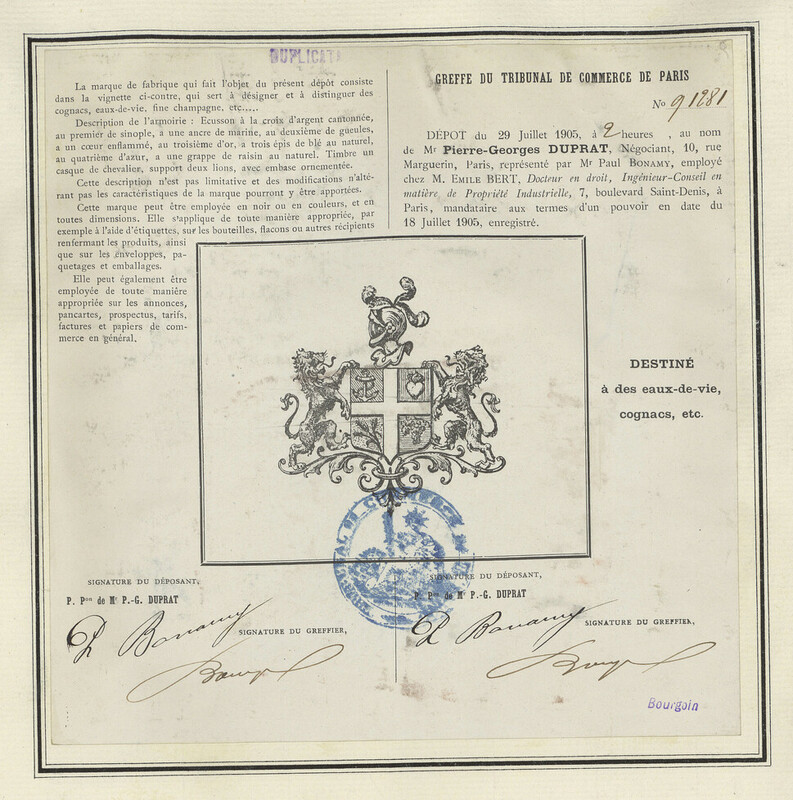 DUPLICATA
La marque de fabrique qui fait l'objet du présent dépôt consiste
dans la vignette ci-contre, qui sert à désigner et à distinguer des
cognacs, eaux-de-vie, fine champagne, etc.....
Description de l'armoirie : Ecusson à la croix d'argent cantonnée,
au premier de sinople, a une ancre de marine, au deuxième de gueules,
a un cœur enflammé, au troisième d'or, a trois épis de blé au naturel,
au quatrième d'azur, a une grappe de raisin au naturel. Timbre un
casque de chevalier, support deux lions, avec embase ornementée.
Cette description n'est pas limitative et des modifications n'alté-
rant pas les caractéristiques de la marque pourront y être apportées.
Cette marque peut être employée en noir ou en couleurs, et en
toutes dimensions. Elle s'applique de toute manière appropriée, par
exemple à l'aide d'étiquettes, sur les bouteilles, flacons ou autres récipients
renfermant les produits, ainsi
que sur les enveloppes, pa-
quetages et emballages.
Elle peut également être
employée de toute manière
appropriée sur les annonces,
pancartes, prospectus, tarifs,
factures et papiers de com-
merce en général.
GREFFE DU TRIBUNAL DE COMMERCE DE PARIS
No 91281
DÉPOT du 29 Juillet 1905, à 2 heures , au nom
de Mr Pierre-Georges DUPRAT, Négociant, 10, rue
Marguerin, Paris, représenté par Mr Paul BONAMY, employé
chez M. EMILE BERT, Docteur en droit, Ingénieur-Conseil en
matière de Propriété Industrielle, 7, boulevard Saint-Denis, à
Paris, mandataire aux termes d'un pouvoir en date du
18 Juillet 1905, enregistré.
DESTINÉ
à des eaux-de-vie,
cognacs, etc.
SIGNATURE DU DÉPOSANT,
P. Pon de Mr P.-G. DUPRAT
P. Bonamy
SIGNATURE DU GREFFIER,
SIGNATURE DU DÉPOSANT,
P. Pon de Mr P.-G. DUPRAT
P. Bonamy
SIGNATURE DU GREFFIER,
Bourgoin